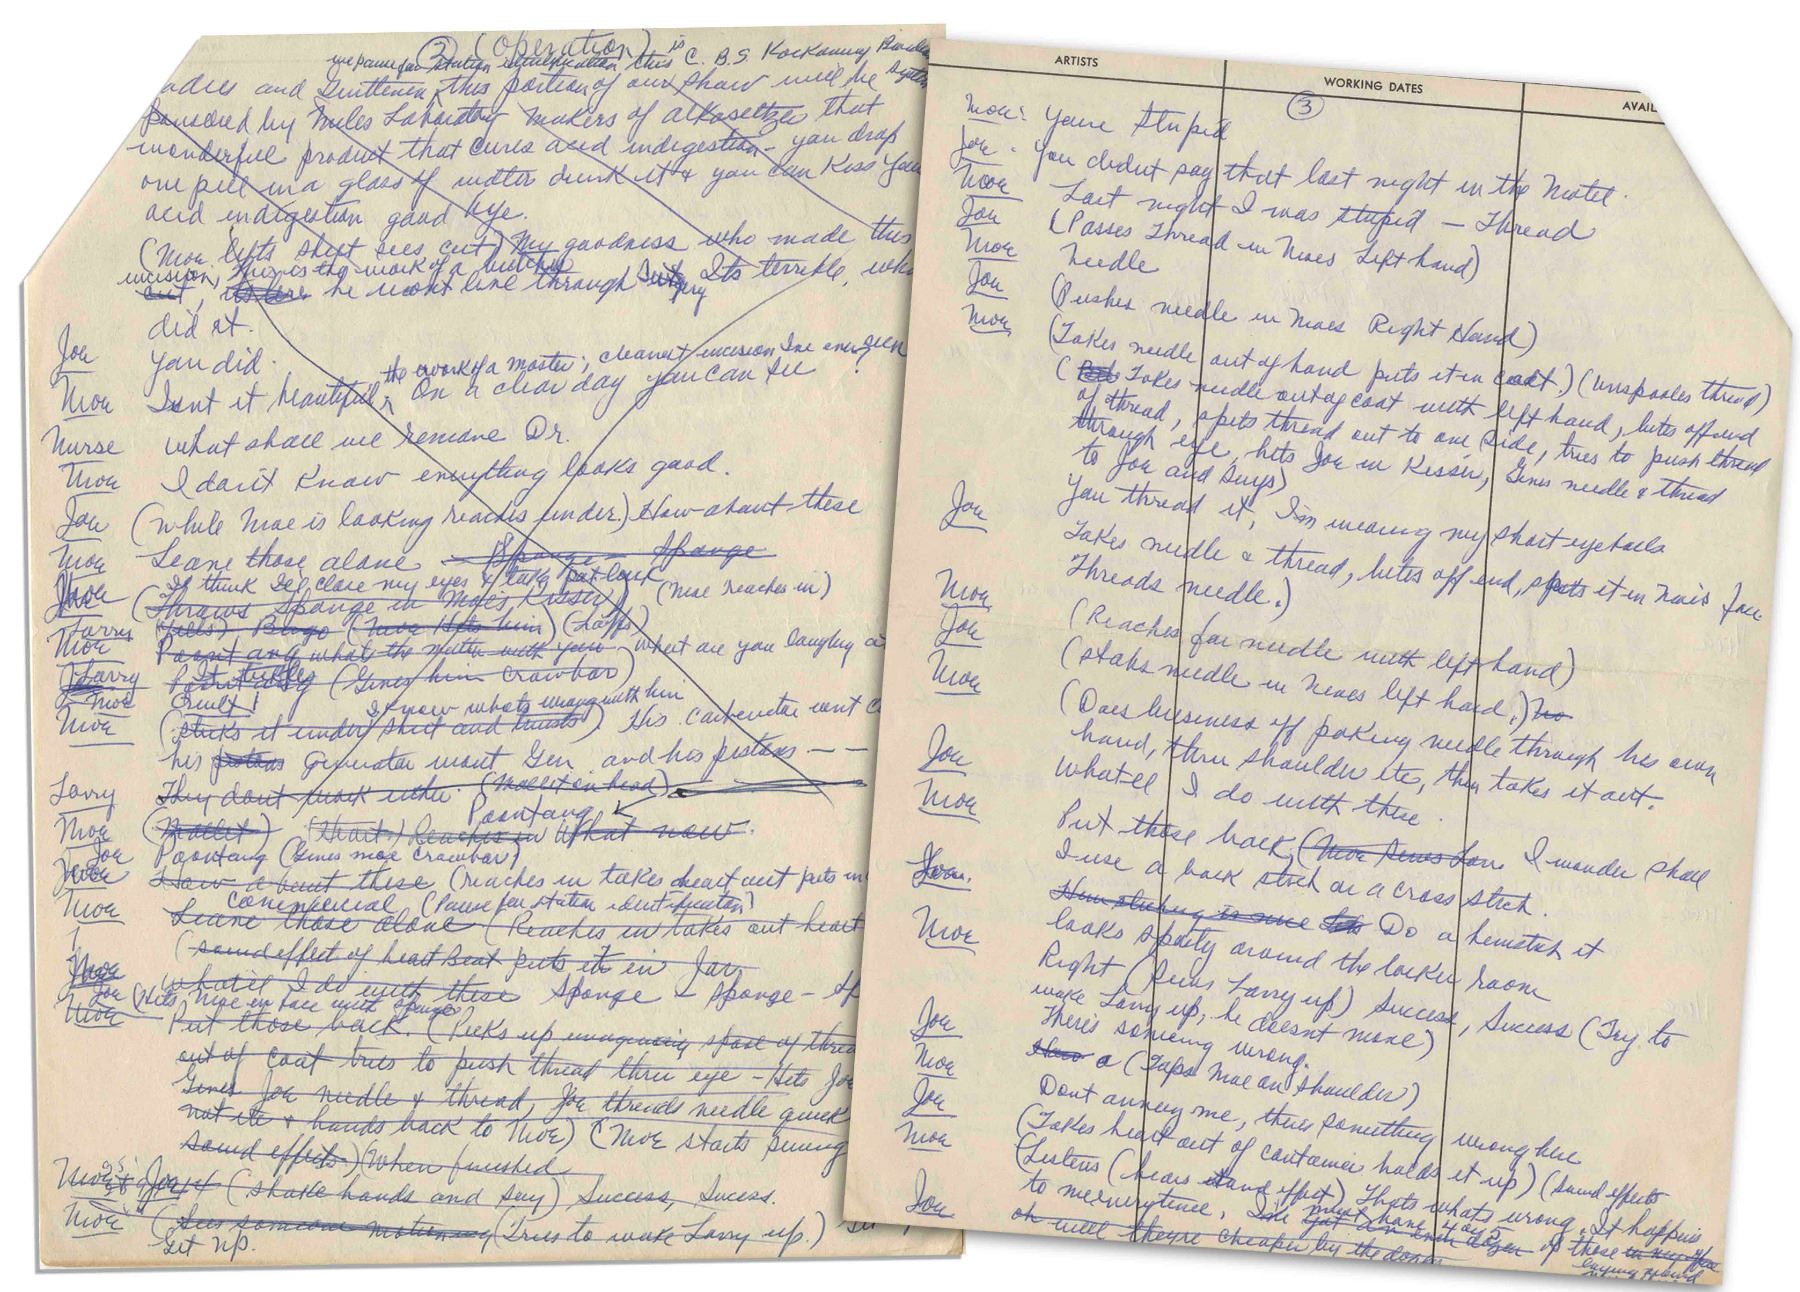 (2) (Operation) is C. B. S. Kockamny
we pause for station identification this
adies and Gentlemen, this portion of our show will be
ponsored by Miles Labratory makers of alkaseltzer that
wonderful product that cures acid indigestion - you drop
one pill in a glass of water drink it & you can Kiss your
acid indigestion good bye.
(Moe lifts sheet sees cut) My goodness who made this
incision, This is the work of a butcher
cut, he wont live through surgery Its terrible, who
did it.
Joe You did.
the work of a master, cleanest incision Ive ever seen
Moe Isnt it beautiful, On a clear day you can see
Nurse What shall we remove Dr.
Moe I don't Know everything looks good.
Joe (While Moe is looking reaches under.) How about these
Moe Leave those alone Sponge - Sponge
I think Ill close my eyes & take pot luck (Moe reaches in)
Joe (Throws Sponge in Moe's Kisser)
Larry yells), Bingo (Moe Hits him) (Laffs)
Moe Point ang whats the matter with you what are you laughing a
It tickles
Larry (Gives him crowbar)
Moe Quiet! I know whats wrong with him
Moe (sticks it under sheet and twists). His carborator wont c
his pistons Generator wont Gen, and his pistons - -
Larry They dont work either. (Mallet on head)
Poontang
Moe (Mallet) (Heart) Reaches in What now.
Joe Poontang (Gives moe crowbar)
How about these (reaches in takes heart out puts in
commercial (Pause for station identification)
Moe Leave those alone (Reaches in takes out heart
(sound effect of heart Beat puts it in Jar
whatell I do with these Sponge - Sponge - Sp
Joe (Hits Moe in face with sponge
Moe Put those back. (Picks up imaginary spool of thread
out of coat tries to push thread thru eye - Hits Joe
Gives Joe needle & thread, Joe threads needle quick
not ite & hands back to Moe) (Moe starts sewing
sound effects.) (When finished
Moe & Joe (shake hands and say) Success, Sucess.
Moe (Sees someone motioning (Tries to wake Larry up.) Get
Get up.
ARTISTS WORKING DATES AVAIL
(3)
Moe: Youre Stupid
Joe - You didnt say that last night in the Motel.
Moe Last night I was stupid - Thread
Joe (Passes Thread in Moes Left hand)
Moe Needle
Joe (Pushes needle in Moes Right Hand)
Moe (Takes needle out of hand puts it in coat.) (Unspools thread)
(Takes needle out of coat with left hand, bites off end
of thread, spits thread out to one side, tries to push thread
through eye, hits Joe in Kisser, Gives needle & thread
to Joe and Says)
You thread it, I'm wearing my short eyeballs
Joe Takes needle & thread, bites off end, spits it in Moe's face
Threads needle.)
Moe (Reaches for needle with left hand)
Joe (stabs needle in Moes left hand.) No
Moe (Does business of poking needle through his own
hand, thru shoulder etc, then takes it out.
Joe Whatell I do with these.
Moe Put those back, (Moe Sews Larr I wonder shall
I use a back stich or a cross stich.
Joe. Do a hemstich it
looks sporty around the locker room
Moe Right (Sews Larry up) Success, Success (Try to
wake Larry up, he doesnt move)
There's someing wrong.
Joe (Taps Moe on shoulder)
Moe Dont annoy me, theres something wrong here
Joe (Takes heart out of container holds it up) (sound effects
Moe (Listens (hears sound effect) Thats whats wrong. It happins
to me everytime. I must have 4 or 5 dozen of those in my office
laying around
Joe oh well theyre cheaper by the dozen